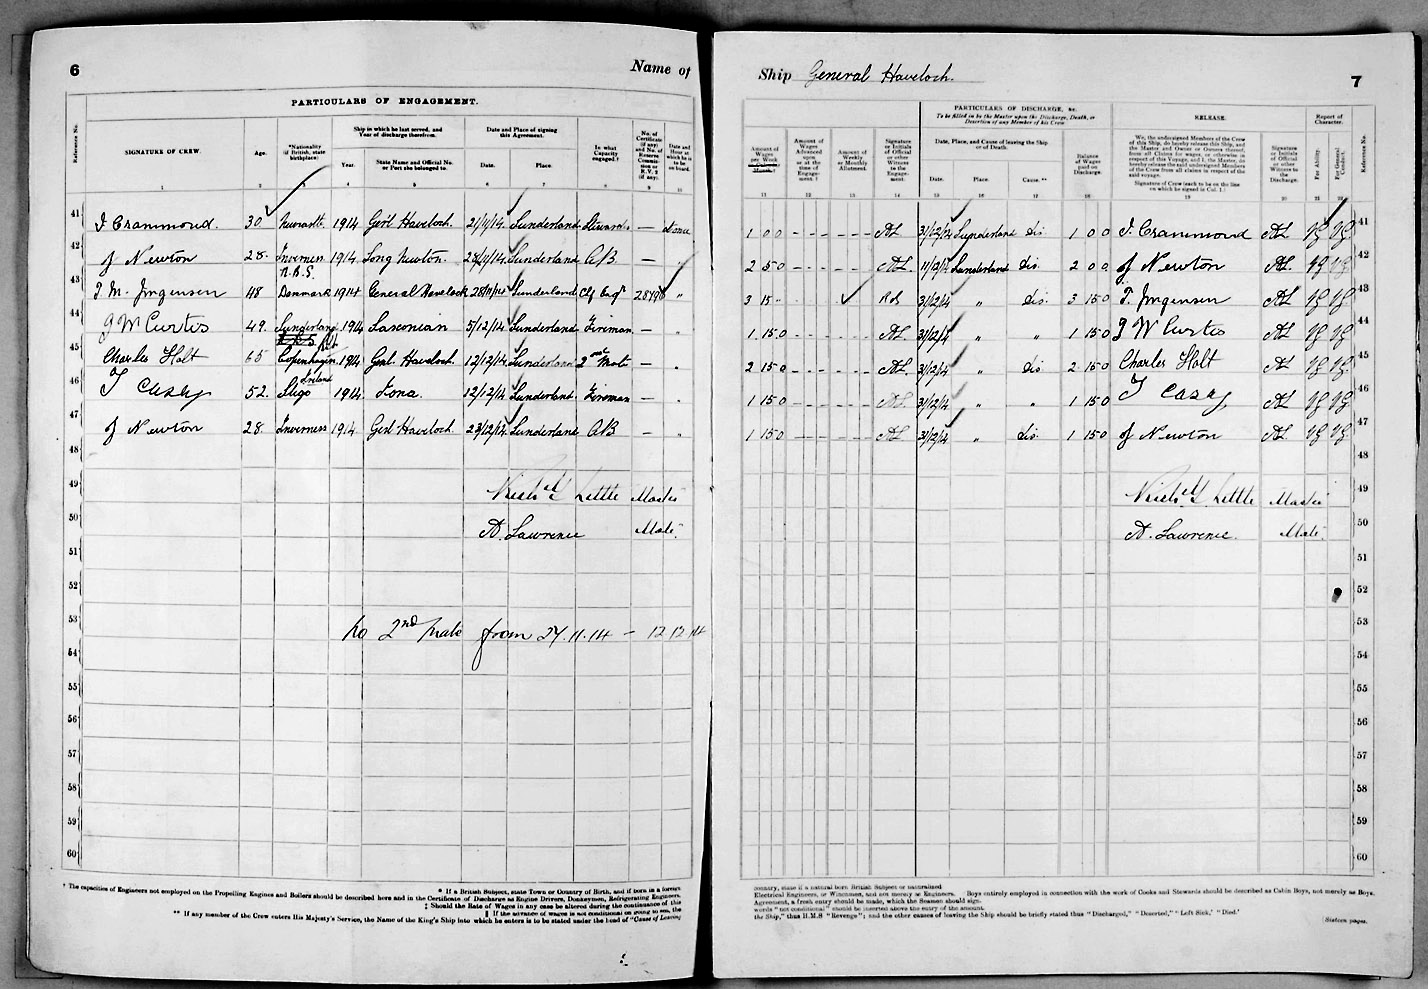 6
Name of
PARTICULARS OF ENGAGEMENT.
Reference No.
SIGNATURE OF CREW.
Age.
*Nationality (if British, state birthplace)
Ship in which he last served, and Year of discharge therefrom.
Year.
State Name and Official No. or Port she belonged to.
Date and Place of signing this Agreement.
Date.
Place.
In what Capacity engaged.†
No. of Certificate (if any) and No. of Reserve Commission or R.V. 2 (if any)
Date and Hour at which he is to be on board.
1 2 3 4 5 6 7 8 9 10
41 Crammond. 30 1914 Gen'l Haveloch. 21/11/14 Sunderland Steward. —
42 J Newton 28. Inverness N.B.S. 1914 Long Newton. Sunderland A/B —
43 Jmgensen 48 Denmark 1914 General Havelock 28/11/14 Sunderland Chf Engr "
44 W Curtis 49. Sunderland 1914 5/12/14 Sunderland Fireman —
45 Charles Holt 65 Copenhagen 1914 Genl. Haveloch. 12/12/14 Sunderland 2nd Mate —
46 T Casey 52. Sligo Ireland 1914. Iona. 12/12/14 Sunderland. Fireman —
47 J Newton 28. Inverness 1914. Genl Haveloch. 23/12/14 Sunderland A/B —
48
49 Little Master
50 A. Lawrence Mate.
51
52
53 no 2nd Mate from 27.11.14 — 12 12 14
54
55
56
57
58
59
60
† The capacities of Engineers not employed on the Propelling Engines and Boilers should be described here and in the Certificate of Discharge as Engine Drivers, Donkeymen, Refrigerating Engineers
* If a British Subject, state Town or Country of Birth, and if born in a foreign
‡ Should the Rate of Wages in any case be altered during the continuance of this
|| If the advance of wages is not conditional on going to sea, the
** If any member of the Crew enters His Majesty's Service, the Name of the King's Ship into which he enters is to be stated under the head of "Cause of Leaving
Ship General Haveloch.
7
PARTICULARS OF DISCHARGE, &c.
To be filled in by the Master upon the Discharge, Death, or Desertion of any Member of his Crew
RELEASE.
Report of Character.
Amount of Wages per Week
Amount of Wages Advanced upon or at the time of Engagement.‡
Amount of Weekly or Monthly Allotment.
Signature or Initials of Official or other Witness to the Engagement.
Date, Place, and Cause of leaving the Ship or of Death.
Date.
Place.
Cause.**
Balance of Wages paid on Discharge.
We, the undersigned Members of the Crew of this Ship, do hereby release this Ship, and the Master and Owner or Owners thereof, from all Claims for wages or otherwise in respect of this Voyage, and I, the Master, do hereby release the said undersigned Members of the Crew from all claims in respect of the said voyage.
Signature of Crew (each to be on the line on which he signed in Col. 1.)
Signature or Initials of Official or other Witness to the Discharge.
For Ability.
For General Conduct.
Reference No.
11 12 13 14 15 16 17 18 19 20 21 22
1 0 0 AL 31/12/14 Sunderland dis. 1 0 0 Crammond AL VG VG 41
2 5 0 AL. 11/12/14 Sunderland dis. 2 0 0 J Newton AL. VG VG 42
3 15 31/12/14 " dis. 3 15 0 Jmgensen AL VG VG. 43
1 15 0 AL 31/12/14 " " 1 15 0 W Curtis AL VG VG. 44
2 15 0 AL. 31/12/14 " dis. 2 15 0 Charles Holt AL VG VG. 45
1 15 0 AL. 31/12/14 " " 1 15 0 T Casey AL VG VG. 46
1 15 0 AL 31/12/14 " dis. 1 15 0 J Newton AL. VG VG. 47
48
Little Master 49
A. Lawrence. Mate. 50
51
52
53
54
55
56
57
58
59
60
country, state if a natural born British Subject or naturalized
Electrical Engineers, or Winchmen, and not merely as Engineers. Boys entirely employed in connection with the work of Cooks and Stewards should be described as Cabin Boys, not merely as Boys.
Agreement, a fresh entry should be made, which the Seaman should sign.
words "not conditional" should be inserted above the entry of the amount.
the Ship," thus H.M.S "Revenge"; and the other causes of leaving the Ship should be briefly stated thus "Discharged," "Deserted," "Left Sick," "Died."
[Sixteen pages.